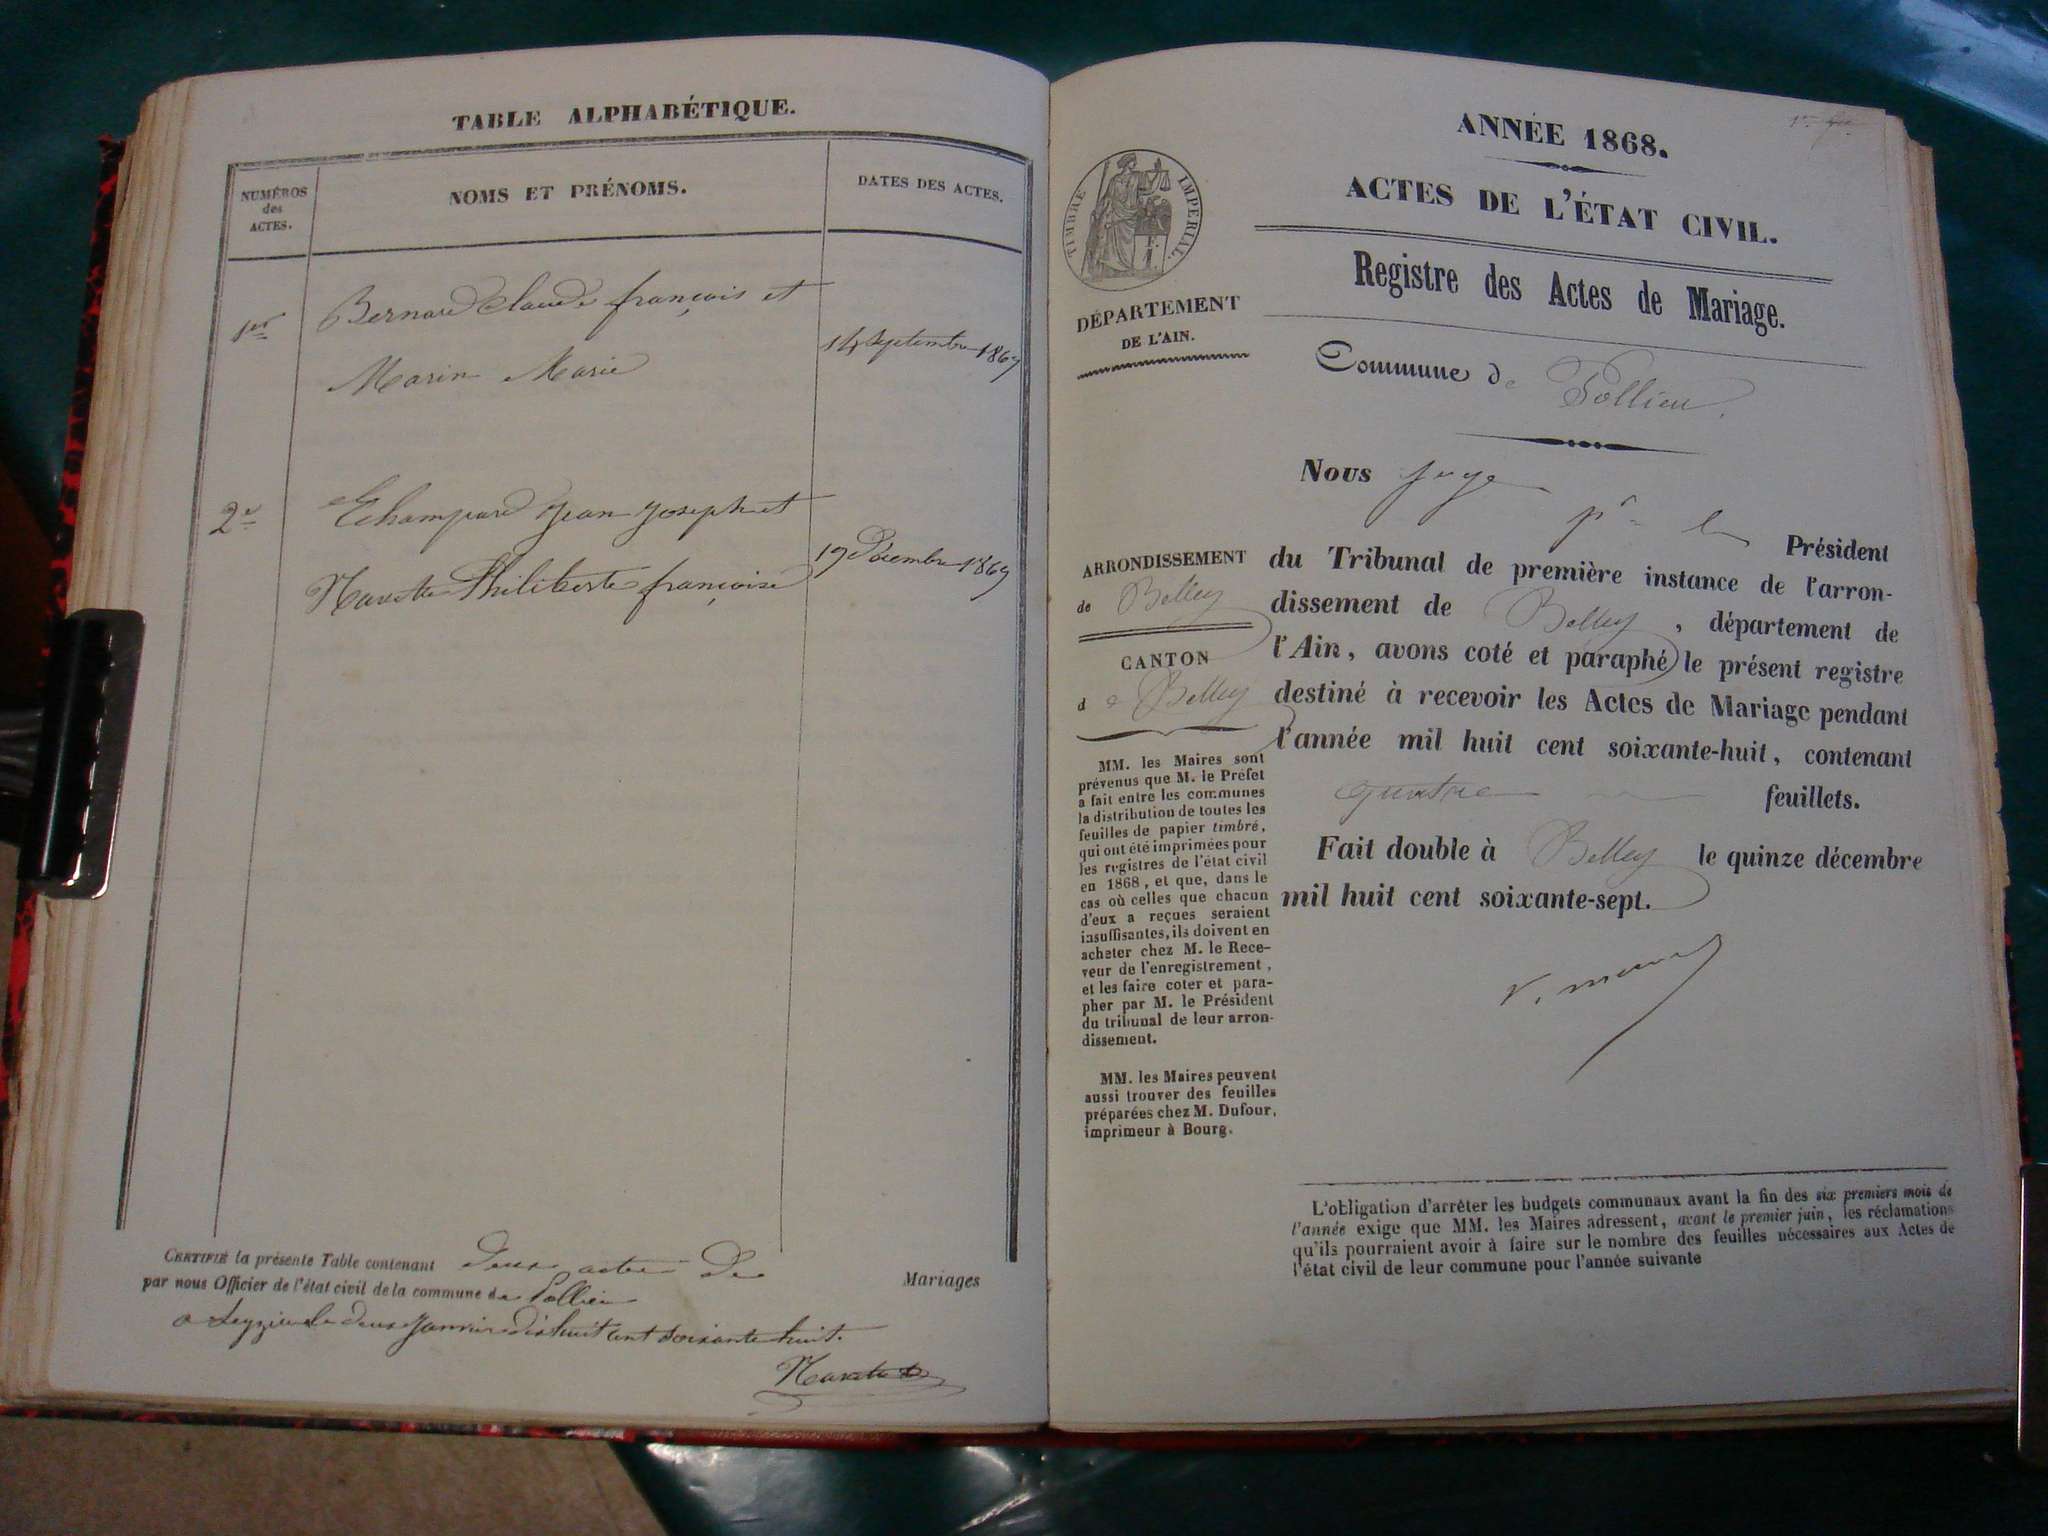 TABLE ALPHABÉTIQUE.
NUMÉROS
des
ACTES.
NOMS ET PRÉNOMS.
DATES DES ACTES.
1er
Bernard Claude françois et
Marin Marie
14 Septembre 1867
2e
Echampard Jean Joseph et
Navette Philiberte françoise
19 Décembre 1867
CERTIFIÉ la présente Table contenant deux actes de Mariages
par nous Officier de l'état civil de la commune de Pollieu
a Leyzieu le deux Janvier dix huit cent soixante huit.
ANNÉE 1868.
ACTES DE L'ÉTAT CIVIL.
Registre des Actes de Mariage.
TIMBRE IMPERIAL.
DÉPARTEMENT
DE L'AIN.
Commune de Pollieu.
Nous juge
pr le Président
ARRONDISSEMENT
de Belley
CANTON
de Belley
du Tribunal de première instance de l'arron-
dissement de Belley, département de
l'Ain, avons coté et paraphé le présent registre
destiné à recevoir les Actes de Mariage pendant
l'année mil huit cent soixante-huit, contenant
quatre feuillets.
Fait double à Belley le quinze décembre
mil huit cent soixante-sept.
MM. les Maires sont
prévenus que M. le Préfet
a fait entre les communes
la distribution de toutes les
feuilles de papier timbré,
qui ont été imprimées pour
les registres de l'état civil
en 1868, et que, dans le
cas où celles que chacun
d'eux a reçues seraient
insuffisantes, ils doivent en
acheter chez M. le Rece-
veur de l'enregistrement,
et les faire coter et para-
pher par M. le Président
du tribunal de leur arron-
dissement.
MM. les Maires peuvent
aussi trouver des feuilles
préparées chez M. Dufour,
imprimeur à Bourg.
L'obligation d'arrêter les budgets communaux avant la fin des six premiers mois de
l'année exige que MM. les Maires adressent, avant le premier juin, les réclamations
qu'ils pourraient avoir à faire sur le nombre des feuilles nécessaires aux Actes de
l'état civil de leur commune pour l'année suivante